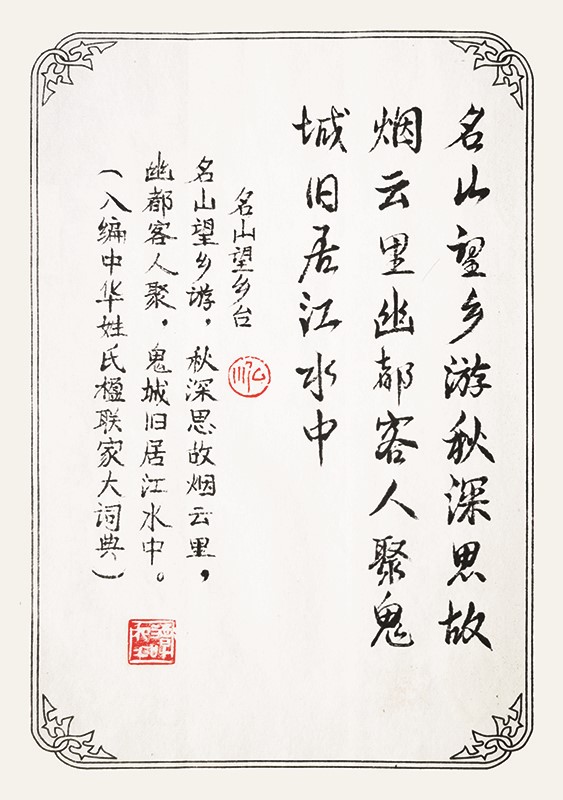 名山望乡游秋深思故
烟云里幽都客人聚鬼
城旧居江水中
名山望乡台
名山望乡游，秋深思故烟云里，
幽都客人聚，鬼城旧居江水中。
（八编中华姓氏楹联家大词典）